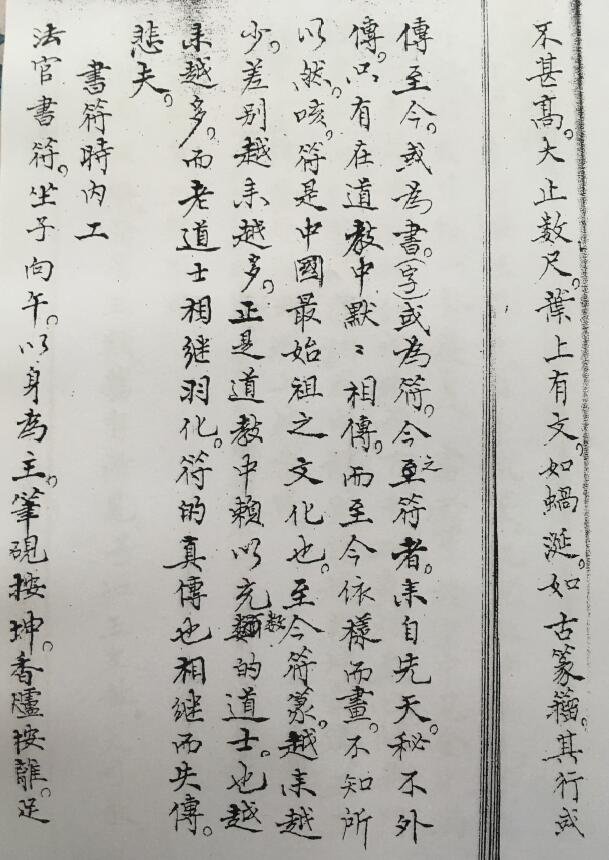 不甚高。大止数尺。葉上有文。如蝸涎。如古篆籀。其行或
傳至今。或為書。(字)或為符。今之至符者。来自先天。秘不外
傳。只有在道教中默〻相傳。而至今依樣而畫。不知所
以然。咳。符是中國最始祖之文化也。至今符篆。越来越
少。差别越来越多。正是道教中賴以充数的道士。也越
来越多。而老道士相继羽化。符的真傳也相继而失傳。
悲夫。
書符時内工
法官書符。坐子向午。以身為主。筆硯按坤。香爐按離。足